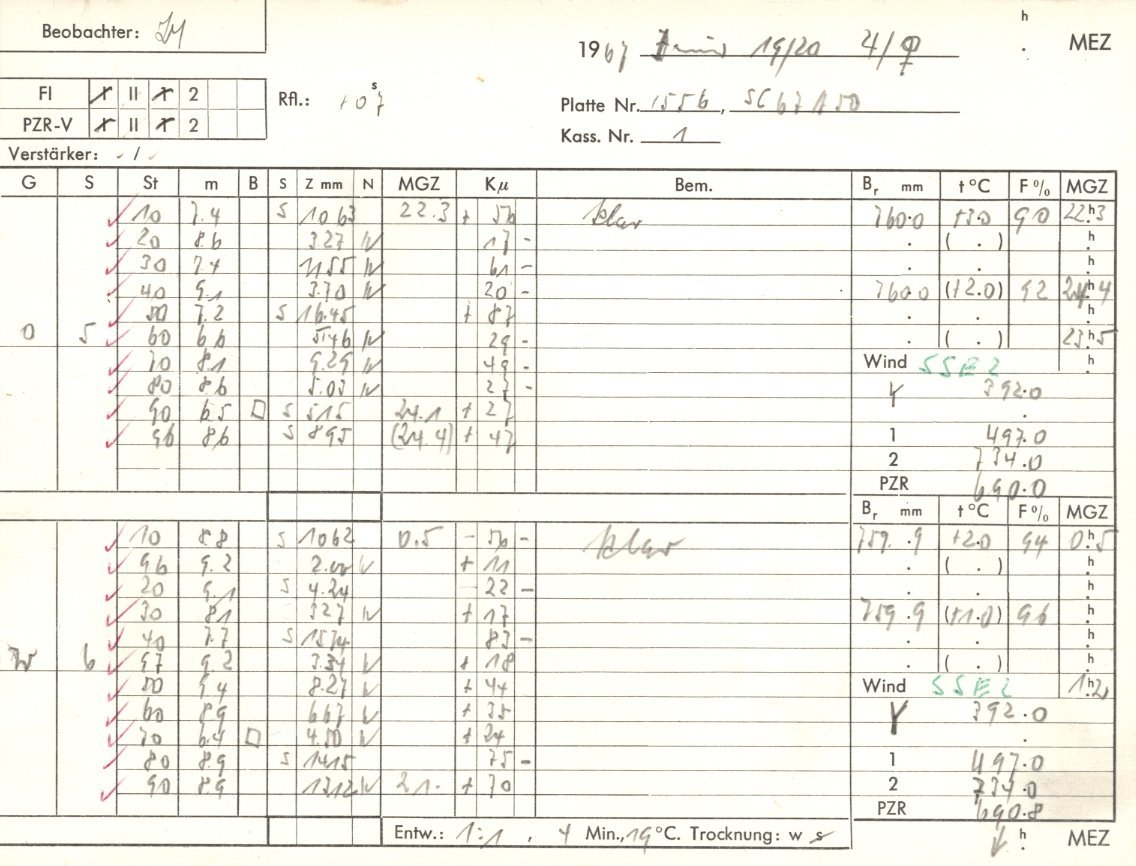 Beobachter:
1967 19/20 4/♀ h . MEZ
FI I II I 2
PZR-V I II I 2
Rfl.: +0 s 7
Platte Nr. 1556, SC67150
Kass. Nr. 1
Verstärker: /
G S St m B S Z mm N MGZ Kμ Bem. Br mm t °C F % MGZ
10 7.4 S 1063 22.3 + 56 klar 760.0 +3.0 90 22h3
20 8.6 3.27 N 17 - . ( . ) h
30 7.4 1155 N 61 - . . h
40 9.1 3.70 N 20 - 760.0 (+2.0) 92 24h4
50 7.2 S 16.45 + 87 . . h
0 5 60 6.6 5.46 N 29 - . ( . ) 23h5
70 8.1 9.29 N 49 - Wind SSE 2 h
80 8.6 5.03 N 27 - 392.0
90 6.5 □ S 515 24.1 + 27 .
96 8.6 S 895 (24.4) + 47 1 497.0
2 734.0
PZR 690.0
Br mm t °C F % MGZ
10 8.8 S 1062 0.5 - 56 - klar 759.9 +2.0 94 0h5
96 9.2 2.00 N + 11 . ( . ) h
20 9.1 S 4.24 22 - . . h
30 8.1 327 N + 17 759.9 (+1.0) 96 h
40 7.7 S 1574 83 - . . h
W 6 97 9.2 3.34 N + 18 . ( . ) h
50 9.4 8.27 N + 44 Wind SSE 2 1h2
60 8.9 667 N + 35 392.0
70 6.4 □ 4.50 N + 24 .
80 8.9 S 1415 75 - 1 497.0
90 8.9 1312 N 21. + 70 2 734.0
PZR 690.8
Entw.: 1:1, 4 Min., 19 °C. Trocknung: w s h . MEZ